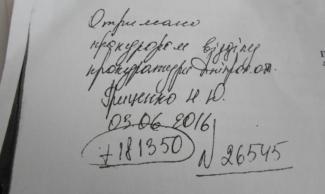 Отримано
прокурором відділу
прокуратури Дніпроп. обл.
Гриценко Н Ю.
03.06 2016
+181350
N 26545